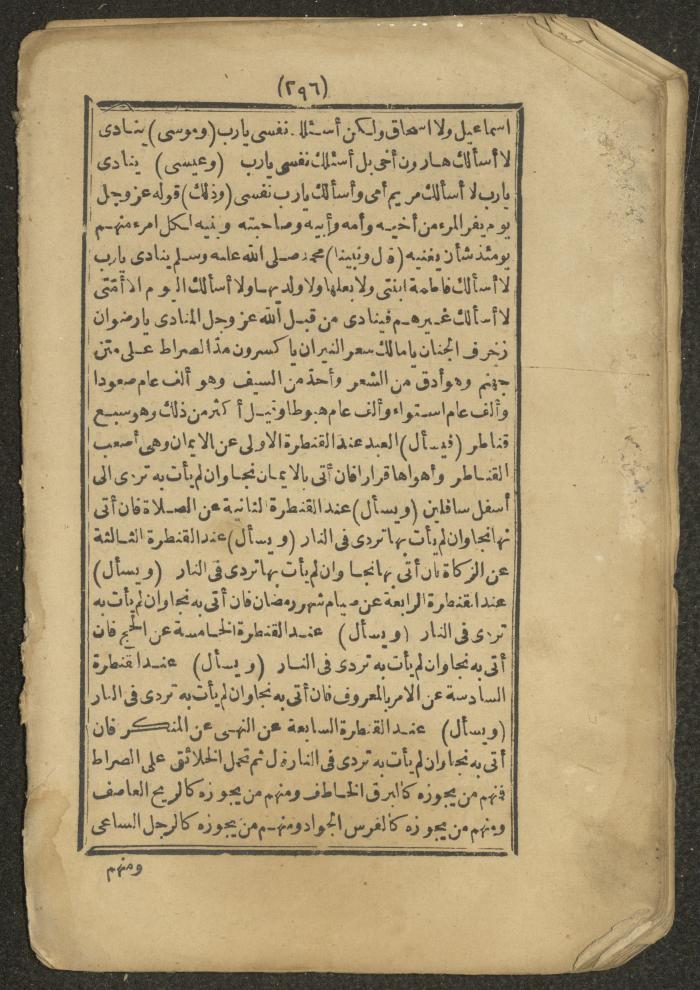 (٢٩٦)
اسماعيل ولا اسحاق ولكن أسئلك نفسى يارب (وموسى) ينادى
لا أسألك هارون أخى بل أسئلك نفسى يارب (وعيسى) ينادى
يارب لا أسألك مريم أمى وأسألك يارب نفسى (وذلك) قوله عز وجل
يوم يفر المرء من أخيه وأمه وأبيه وصاحبته وبنيه لكل امرء منهم
يومئذ شأن يغنيه (قل ونبينا) محمد صلى الله عليه وسلم ينادى يارب
لا أسألك فاطمة ابنتى ولا بعلها ولا ولديها ولا أسألك اليوم الا أمتى
لا أسألك غيرهم فينادى من قبل الله عز وجل المنادى يارضوان
زخرف الجنان يامالك سعر النيران يا كسرون مد الصراط على متن
جهنم وهو أدق من الشعر وأحد من السيف وهو ألف عام صعودا
وألف عام استواء وألف عام هبوطا وقيل أكثر من ذلك وهو سبع
قناطر (فيسأل) العبد عند القنطرة الاولى عن الايمان وهى أصعب
القناطر وأهواها قرارا فان أتى بالايمان نجا وان لم يأت به تردى الى
أسفل سافلين (ويسأل) عند القنطرة الثانية عن الصلاة فان أتى
بها نجا وان لم يأت بها تردى فى النار (ويسأل) عند القنطرة الثالثة
عن الزكاة فان أتى بها نجا وان لم يأت بها تردى فى النار (ويسأل)
عند القنطرة الرابعة عن صيام شهر رمضان فان أتى به نجا وان لم يأت به
تردى فى النار (ويسأل) عند القنطرة الخامسة عن الحج فان
أتى به نجا وان لم يأت به تردى فى النار (ويسأل) عند القنطرة
السادسة عن الامر بالمعروف فان أتى به نجا وان لم يأت به تردى فى النار
(ويسأل) عند القنطرة السابعة عن النهى عن المنكر فان
أتى به نجا وان لم يأت به تردى فى النار قل ثم تحمل الخلائق على الصراط
فمنهم من يجوزه كالبرق الخاطف ومنهم من يجوزه كالريح العاصف
ومنهم من يجوزه كالفرس الجواد ومنهم من يجوزه كالرجل الساعى
ومنهم